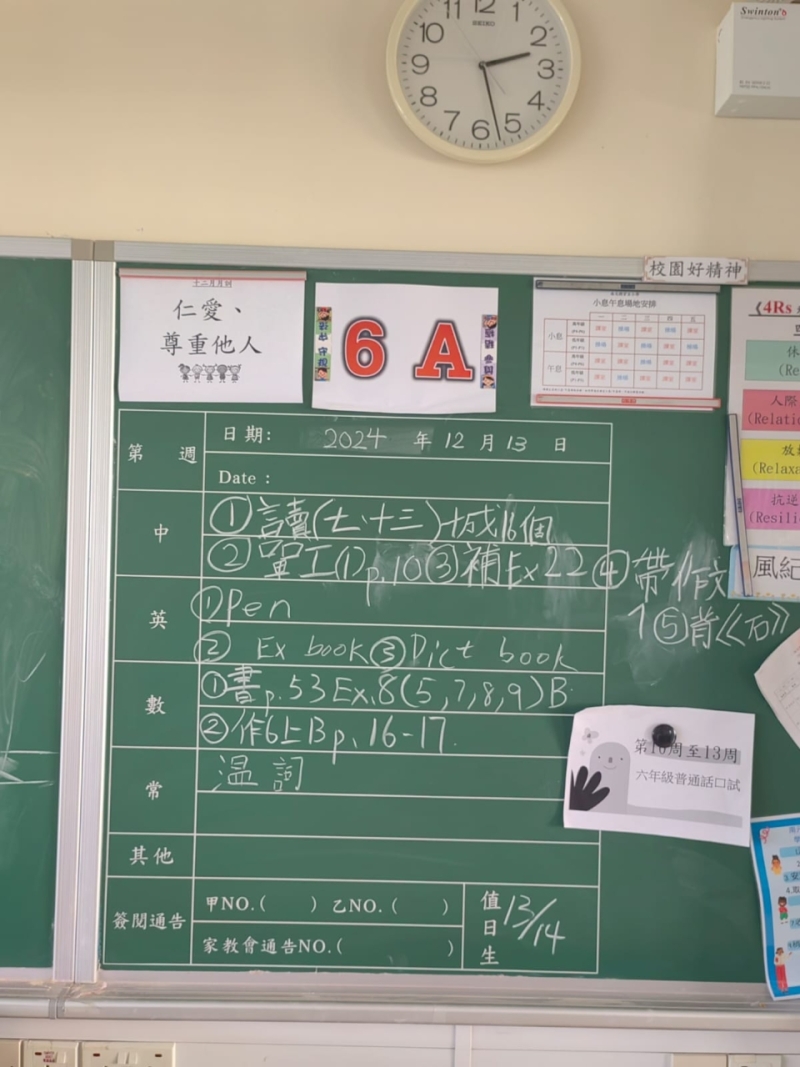 11 12 1
10 2
9 3
8 4
7 6 5
SEIKO
Swinton
校園好精神
十二月月訓
仁愛、
尊重他人
6A
小息午息場地安排
一 二 三 四 五
小息
午息
《4Rs
(Re
人際
(Relatio
(Relaxa
抗逆
(Resili
風紀
第 週
日期: 2024 年 12 月 13 日
Date :
中
①讀(七、十三)城16個
②單工(1)p.10③補Ex22④帶作文
1⑤背《石》
英
①Pen
② Ex book③Dict book
數
①書p.53Ex.8(5,7,8,9)B
②作6上Bp.16-17.
常
溫詞
其他
簽閱通告
甲NO.( ) 乙NO.( )
家教會通告NO.( )
值日生
13/14
第16周至13周
六年級普通話口試